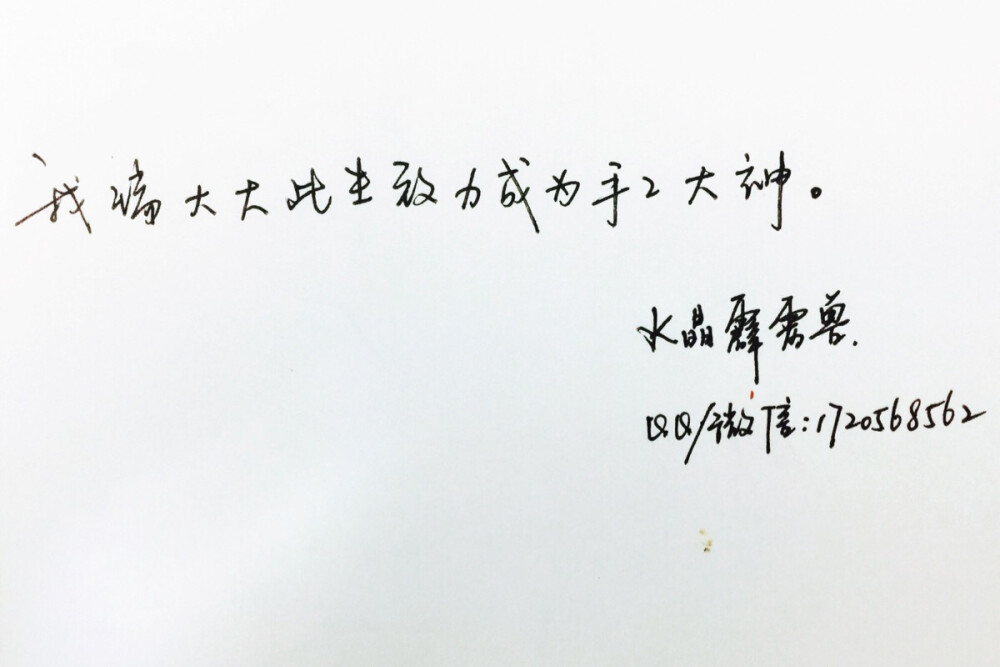 我瑞大大此生致力成为手工大神。
水晶霹雳兽.
QQ/微信:1720568562